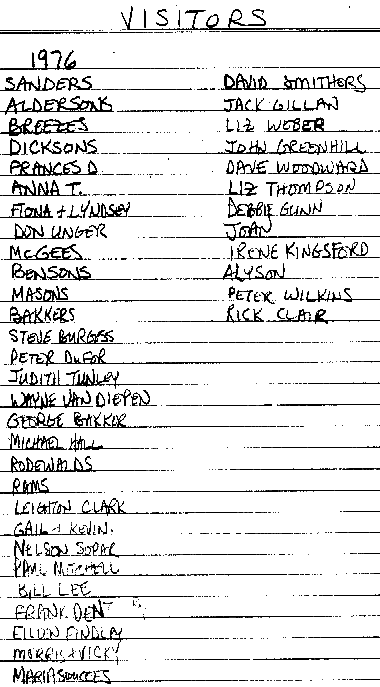 VISITORS
1976
SANDERS
ALDERSONS
BREEZES
DICKSONS
FRANCES D
ANNA T.
FIONA + LYNDSEY
DON UNGER
MCGEES
BENSONS
MASONS
BAKKERS
STEVE BURGESS
PETER DUFOR
JUDITH TUNLEY
WAYNE VAN DIEPEN
GEORGE BAKKER
MICHAEL HALL
RODEWALDS
RAMS
LEIGHTON CLARK
GAIL + KEVIN.
NELSON SOPAR
PAUL MITCHELL
BILL LEE
FRANK DENT
FINDLAY
MORRIS + VICKY
MARIA
DAVID SMITHERS
JACK GILLAN
LIZ WEBER
JOHN GREENHILL
DAVE WOODWARD
LIZ THOMPSON
DEBBIE GUNN
JOAN
IRENE KINGSFORD
ALYSON
PETER WILKINS
RICK CLAIR